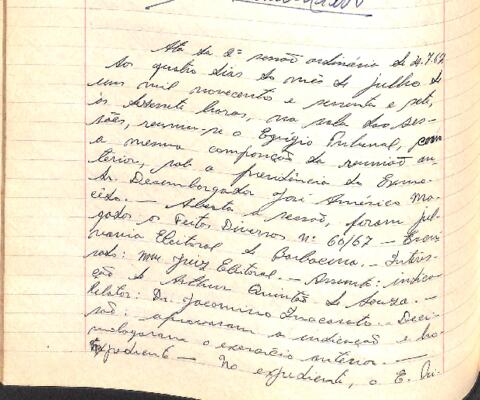 Ata da 2ª sessão ordinária de 4.7.67
Aos quatro dias do mês de julho de
um mil novecentos e sessenta e sete,
às dezesete horas, na sala das ses-
sões, reuniu-se o Egrégio Tribunal, com
a mesma composição da reunião an-
terior, sob a presidência do Exmo
Sr. Desembargador José Américo Ma-
cêdo. — Aberta a sessão, foram jul-
gados os Feitos Diversos nº 66/67 — Proce-
dência Eleitoral de Barbacena. — Interes-
sado: MM Juiz Eleitoral. — Assunto: indica-
ção de Arthur Quintão de Souza. —
Relator: Dr. Jacomino Inacarato. — Deci-
são: aprovaram a indicação e ho-
mologaram o exercício anterior. —
Expediente — No expediente, o E.